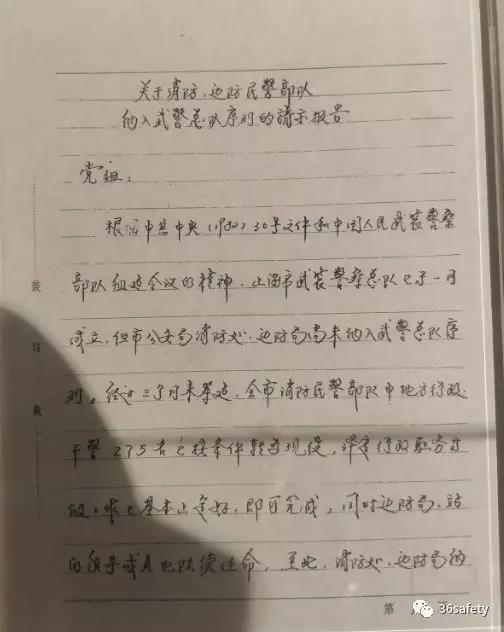 关于消防、边防民警部队
纳入武警总队序列的请示报告
党组：
根据中共中央（1982）30号文件和中国人民武装警察
部队组建会议的精神，上海市武装警察总队已于一月
成立，但市公安局消防处、边防局尚未纳入武警总队序
列。经过三个月来筹建，全市消防民警部队中地方行政
干警275名已按条件转为现役，评定行政职务等
级，也已基本上定好，即可完成，同时边防局、站
的领导成员也陆续任命，至此，消防处、边防局纳
装
订
第 页
36safety